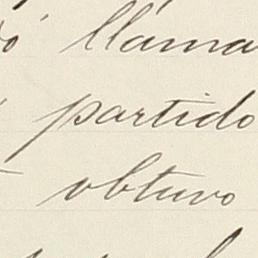 llama
partido
obtuvo